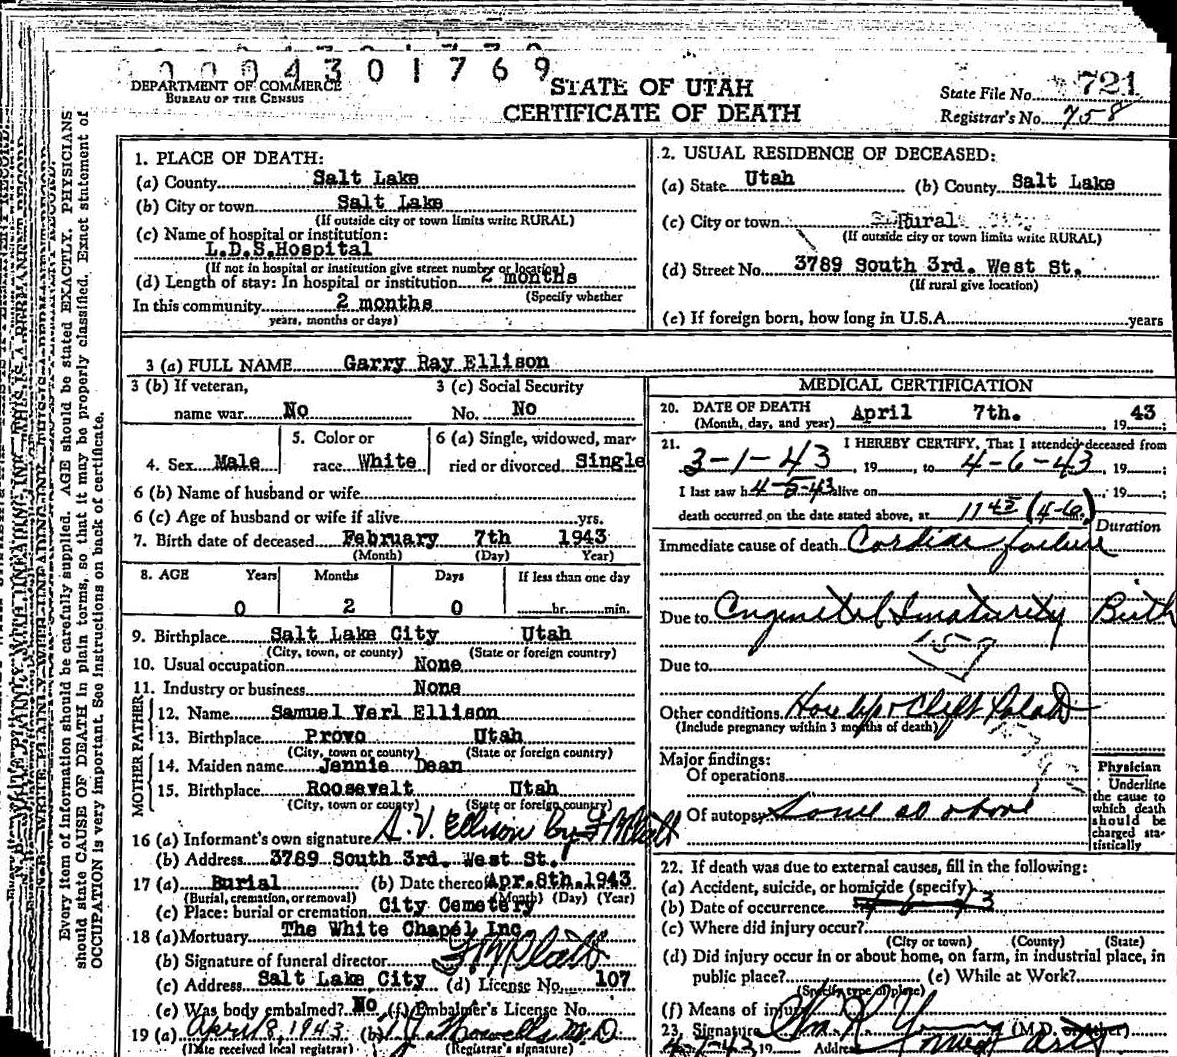 0004301769
DEPARTMENT OF COMMERCE
BUREAU OF THE CENSUS
STATE OF UTAH
CERTIFICATE OF DEATH
State File No. 721
Registrar's No. 758
Every item of information should be carefully supplied. AGE should be stated EXACTLY. PHYSICIANS
should state CAUSE OF DEATH in plain terms, so that it may be properly classified. Exact statement of
OCCUPATION is very important. See instructions on back of certificate.
1. PLACE OF DEATH:
(a) County Salt Lake
(b) City or town Salt Lake
(If outside city or town limits write RURAL)
(c) Name of hospital or institution:
L.D.S.Hospital
(If not in hospital or institution give street number or location)
(d) Length of stay: In hospital or institution 2 months
(Specify whether
In this community 2 months
years, months or days)
2. USUAL RESIDENCE OF DECEASED:
(a) State Utah (b) County Salt Lake
(c) City or town Rural
(If outside city or town limits write RURAL)
(d) Street No. 3789 South 3rd. West St.
(If rural give location)
(e) If foreign born, how long in U.S.A. years
3 (a) FULL NAME Garry Ray Ellison
3 (b) If veteran, name war No
3 (c) Social Security No. No
4. Sex Male
5. Color or race White
6 (a) Single, widowed, married or divorced Single
6 (b) Name of husband or wife
6 (c) Age of husband or wife if alive yrs.
7. Birth date of deceased February 7th 1943
(Month) (Day) Year)
8. AGE Years Months Days If less than one day
0 2 0 hr. min.
9. Birthplace Salt Lake City Utah
(City, town, or county) (State or foreign country)
10. Usual occupation None
11. Industry or business None
FATHER
12. Name Samuel Verl Ellison
13. Birthplace Provo Utah
(City, town or county) (State or foreign country)
MOTHER
14. Maiden name Jennie Dean
15. Birthplace Roosevelt Utah
(City, town or county) (State or foreign country)
16 (a) Informant's own signature S. V. Ellison By
(b) Address 3789 South 3rd. West St.
17 (a) Burial (b) Date thereof Apr.8th.1943
(Burial, cremation, or removal) (Month) (Day) (Year)
(c) Place: burial or cremation City Cemetery
18 (a) Mortuary The White Chapel Inc
(b) Signature of funeral director
(c) Address Salt Lake City (d) License No. 107
(e) Was body embalmed? No (f) Embalmer's License No.
19 (a) April 8, 1943 (b) M D
(Date received local registrar) (Registrar's signature)
MEDICAL CERTIFICATION
20. DATE OF DEATH April 7th. 19 43
(Month, day, and year)
21. I HEREBY CERTIFY, That I attended deceased from
3-1-43, 19, to 4-6-43, 19;
I last saw h 4-5-43 alive on 19;
death occurred on the date stated above, at 11 45 (4-6.)
Duration
Immediate cause of death Cardiac failure
Due to Congenital Immaturity Birth
Due to
Other conditions Hare lip & Cleft Palate
(Include pregnancy within 3 months of death)
Major findings:
Of operations
Of autopsy Same as above
Physician
Underline
the cause to
which death
should be
charged sta-
tistically
22. If death was due to external causes, fill in the following:
(a) Accident, suicide, or homicide (specify)
(b) Date of occurrence 4 6 43
(c) Where did injury occur?
(City or town) (County) (State)
(d) Did injury occur in or about home, on farm, in industrial place, in
public place? (e) While at Work?
(Specify type of place)
(f) Means of injury
23. Signature Wm R Young (M.D. or other)
4-7-43 19 Address